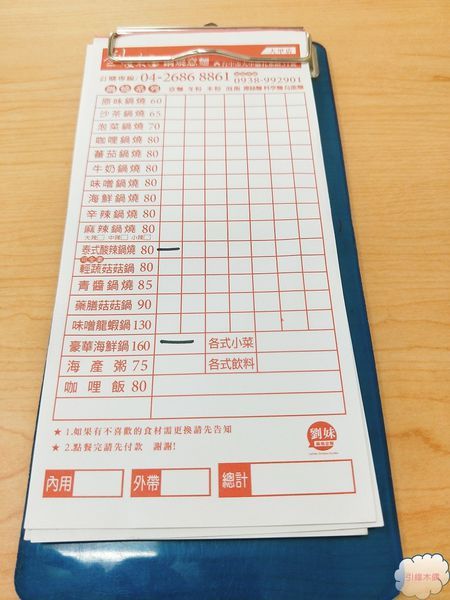 鍋燒意麵 大甲店
訂購專線: 04-2686 8861 0938-992901
鍋燒系列 意麵 冬粉 米粉 泡飯 烏龍麵 科學麵
原味鍋燒 60
沙茶鍋燒 65
泡菜鍋燒 70
咖哩鍋燒 80
蕃茄鍋燒 80
牛奶鍋燒 80
味噌鍋燒 80
海鮮鍋燒 80
辛辣鍋燒 80
麻辣鍋燒 80
大辣□ 中辣□ 小辣□
泰式酸辣鍋燒 80
輕蔬菇菇鍋 80
青醬鍋燒 85
藥膳菇菇鍋 90
味噌龍蝦鍋 130
豪華海鮮鍋 160 各式小菜
海產粥 75 各式飲料
咖哩飯 80
★ 1.如果有不喜歡的食材需更換請先告知
★ 2.點餐完請先付款 謝謝!
劉妹
內用 外帶 總計
引線木偶